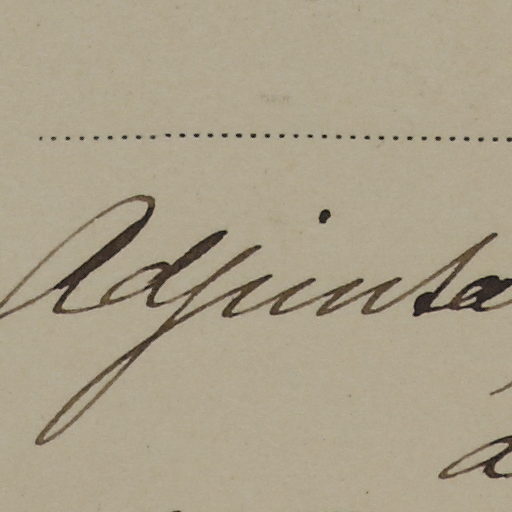 Adjunta
a